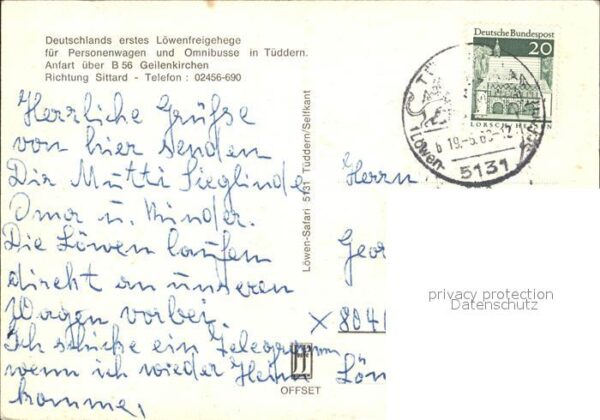 Deutschlands erstes Löwenfreigehege
für Personenwagen und Omnibusse in Tüddern.
Anfart über B 56 Geilenkirchen
Richtung Sittard - Telefon : 02456-690
Herrliche Grüße
von hier senden
Dir Mutti Sieglinde
Oma u. Kinder.
Die Löwen laufen
direkt an unseren
Wagen vorbei.
Ich schicke ein Telegramm
wenn ich wieder Heim
komme,
Löwen-Safari 5131 Tüddern/Selfkant
OFFSET
Deutsche Bundespost
20
LORSCH HESSEN
Löwen-
5131
Herrn
Geor
X 804
Lön
privacy protection
Datenschutz